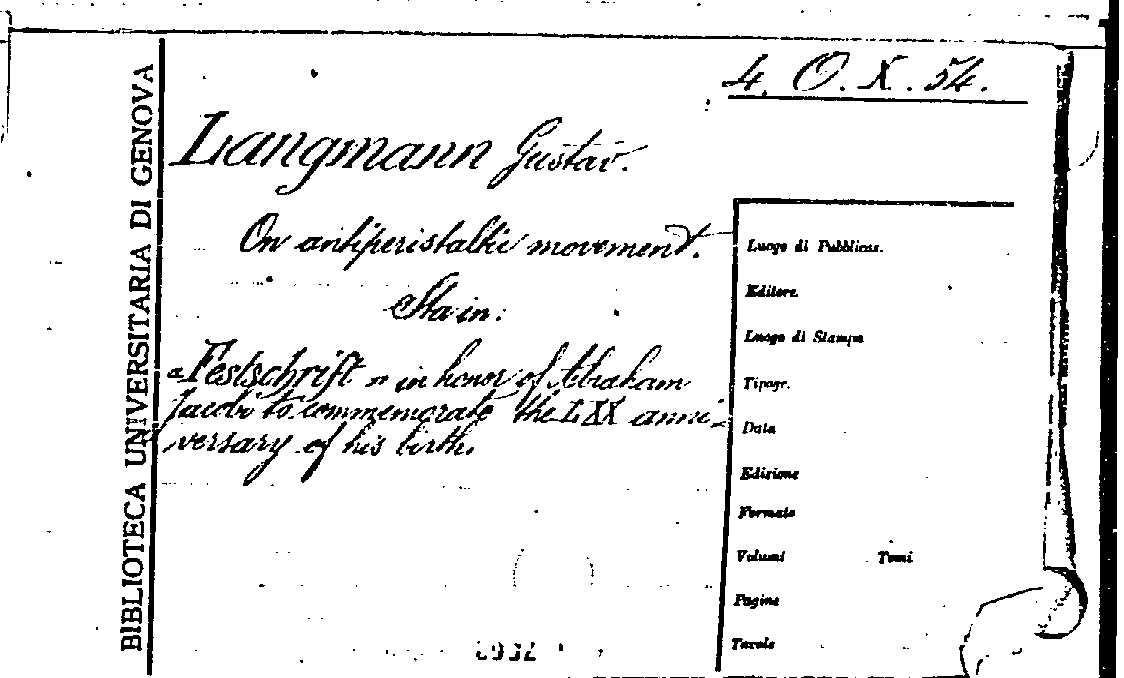 4. O. X. 54.
BIBLIOTECA UNIVERSITARIA DI GENOVA
Langmann Gustav.
On antiperistaltic movement.
Sta in:
«Festschrift» in honor of Abraham
Jacobi to commemorate the LXX anni-
versary of his birth.
Luogo di Pubblicaz.
Editore
Luogo di Stampa
Tipogr.
Data
Edizione
Formato
Volumi Tomi
Pagine
Tavole